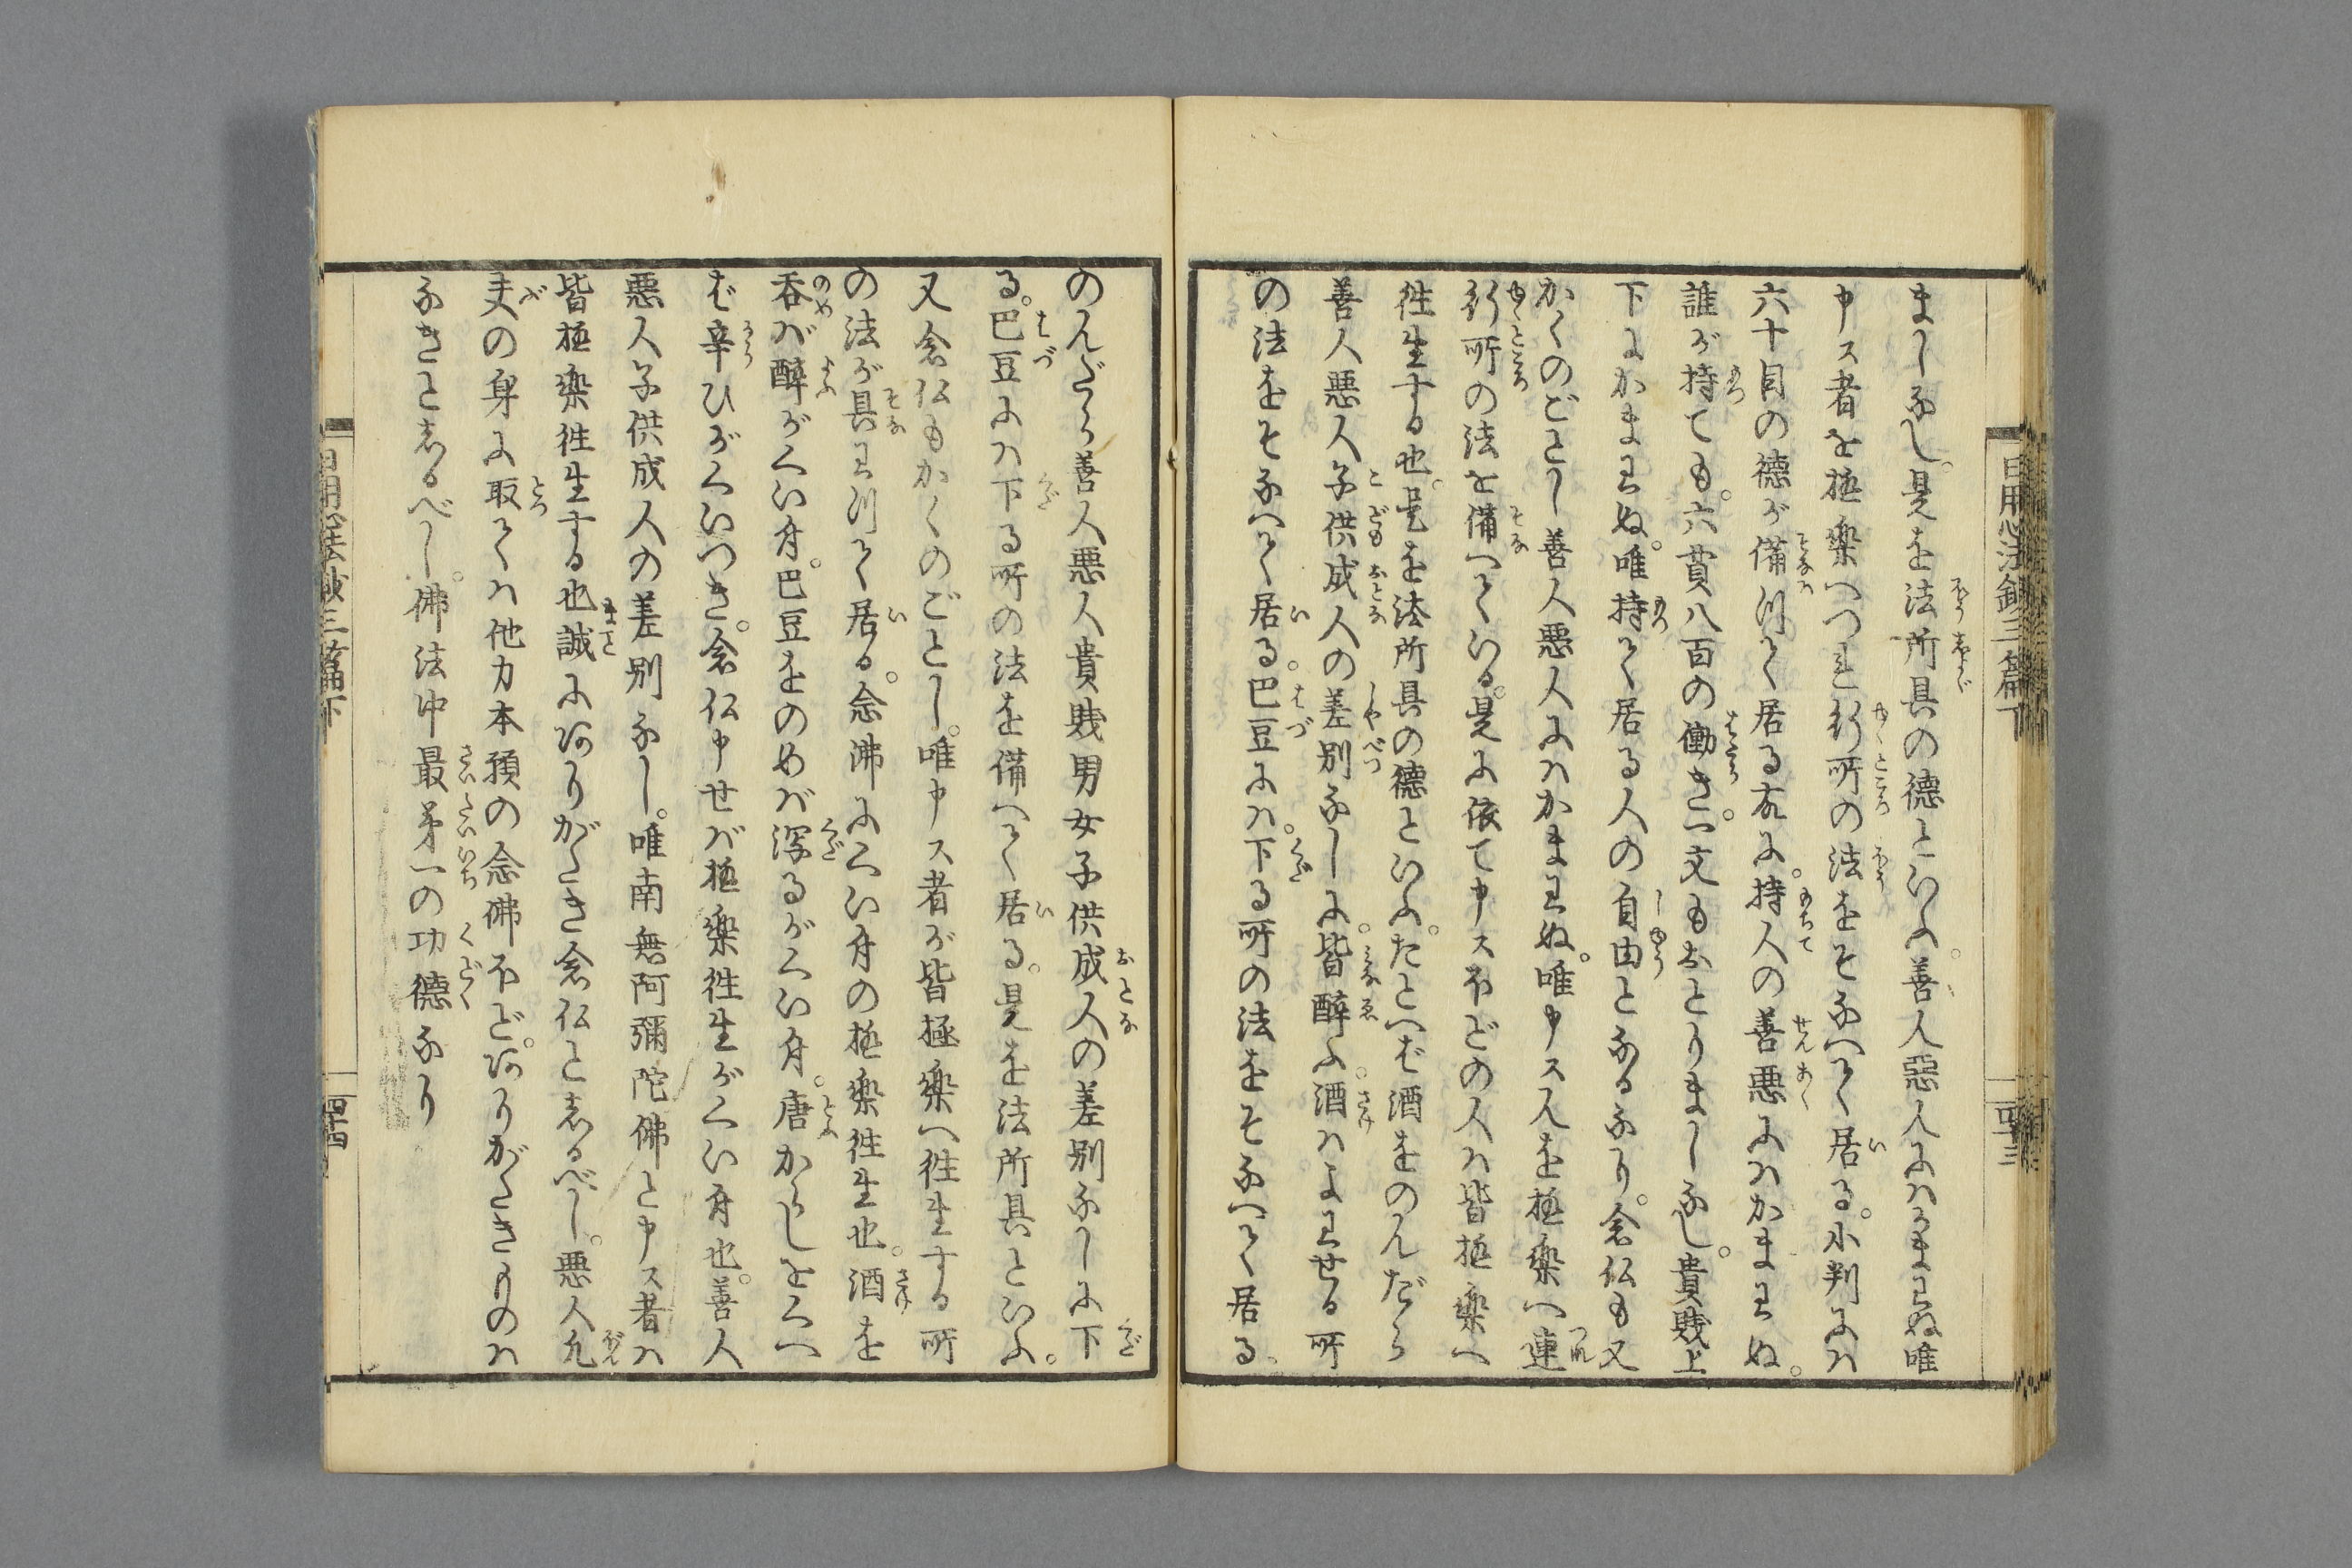 ましなし。是を法所具の徳といふ。善人惡人にハかまわぬ唯
申ス者を極樂へつれ行所の法をそなへて居る。小判にハ
六十目の徳が備ツて居る故に。持人の善悪にハかまわぬ。
誰が持ても。六貫八百の働き。一文もおとりましなし。貴賎上
下にかまわぬ。唯持て居る人の自由となるなり。念仏も又
かくのごとし善人悪人にハかまわぬ。唯申ス人を極樂へ連
行所の法を備へている。是に依て申スほどの人ハ皆極樂へ
往生する也。是を法所具の徳といふ。たとへば酒をのんだら
善人悪人子供成人の差別なしに。皆醉ふ。酒ハよわせる所
の法をそなへて居る。巴豆にハ。下る所の法をそなへて居る。
のんだら善人悪人貴賎男女子供成人の差別なしに下
る。巴豆にハ下る所の法を備へて居る。是を法所具といふ。
又念仏もかくのごとし。唯申ス者が皆極樂へ往生する所
の法が具わツて居る。念佛にくい舟の極楽往生也。酒を
呑バ醉がくい舟。巴豆をのめバ瀉るがくい舟。唐からしをくへ
ば辛ひがくいつき。念仏申せバ極樂往生がくい舟也。善人
悪人子供成人の差別なし。唯南無阿彌陀佛と申ス者ハ
皆極樂往生する也誠にありがたき念仏と志るべし。悪人凡
夫の身に取てハ他力本預の念佛ほど。ありがたきものハ
なきと志るべし。佛法中最第一の功德なり
日用心法鈔三篇下
四十三
日用心法鈔三篇下
四十四